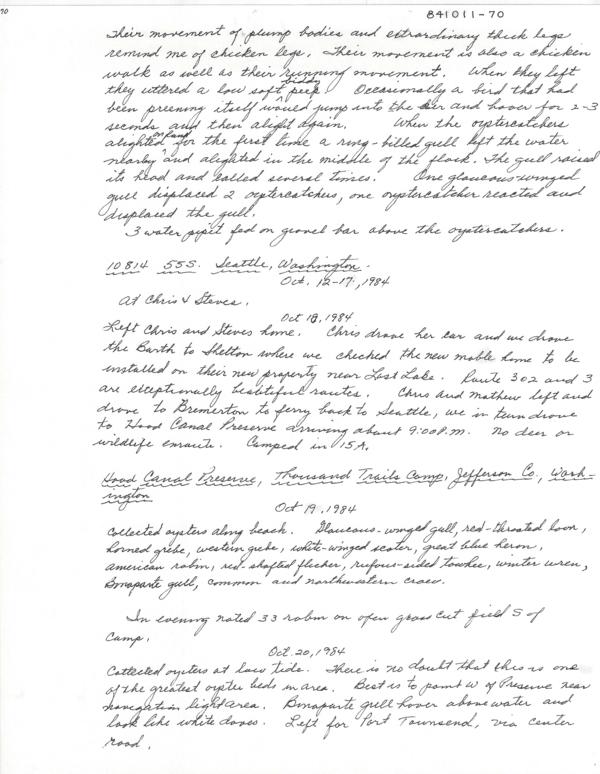 70
841011-70
Their movement of plump bodies and extraordinary thick legs
remind me of chicken legs. Their movement is also a chicken
walk as well as their running movement. When they left
they uttered a low soft biddy peep. Occasionally a bird that had
been preening itself would jump into the air and hover for 2-3
seconds and then alight again. When the oystercatchers
alighted on land for the first time a ring-billed gull left the water
nearby and alighted in the middle of the flock. The gull raised
its head and called several times. One glaucous-winged
gull displaced 2 oystercatchers, one oystercatcher reacted and
displaced the gull.
3 water pipit fed on gravel bar above the oystercatchers.
10814 55S. Seattle, Washington.
Oct. 12-17, 1984
At Chris & Steves.
Oct 18, 1984
Left Chris and Steves home. Chris drove her car and we drove
the Barth to Shelton where we checked the new moble home to be
installed on their new property near Lost Lake. Route 302 and 3
are exceptionally beautiful routes. Chris and Mathew left and
drove to Bremerton to ferry back to Seattle, we in turn drove
to Hood Canal Preserve arriving about 9:00 P.M. No deer or
wildlife enroute. Camped in 15A.
Hood Canal Preserve, Thousand Trails Camp, Jefferson Co., Wash-
ington
Oct 19, 1984
Collected oysters along beach. Glaucous-winged gull, red-throated loon,
horned grebe, western grebe, white-winged scoter, great blue heron,
american robin, red-shafted flicker, rufous-sided towhee, winter wren,
Bonaparte gull, common and northwestern crow.
In evening noted 33 robin on open grass cut field S of
Camp.
Oct. 20, 1984
Collected oysters at low tide. There is no doubt that this is one
of the greatest oyster beds in area. Best is to point W of Preserve near
navigation light area. Bonaparte gull hover above water and
look like white doves. Left for Port Townsend, via center
road.